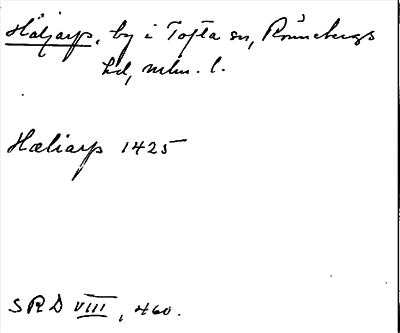 Häljarp, by i Tofta sn, Rönnebergs
hd, mlm. l.
Hæliarp 1425
SRD VIII, 460.